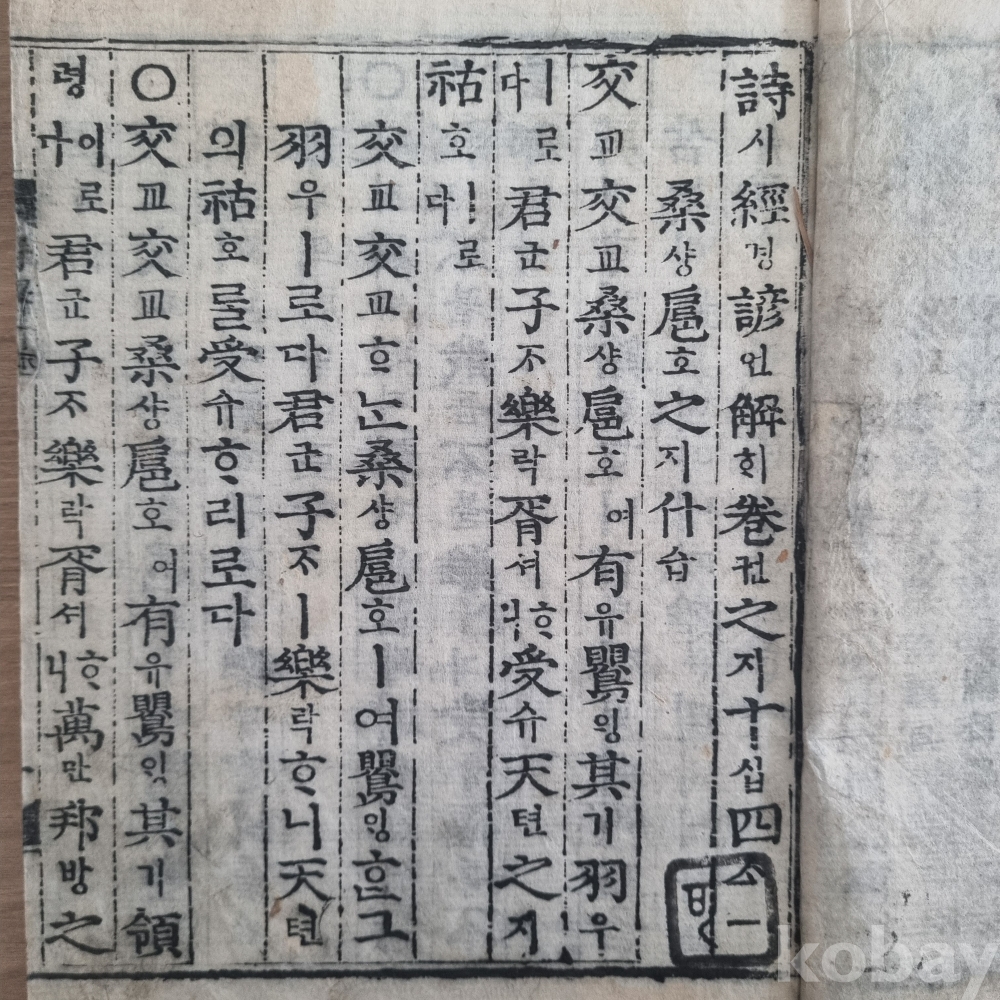 詩시經경諺언解ᄒᆡ卷권之지十십四ᄉᆞ一
桑샹扈호之지什습
交교交교桑샹扈호여有유鶯ᄋᆡᆼ其기羽우
ㅣ로다君군子ᄌᆞ樂락胥셔ᄒᆞ니受슈天텬之지
祜호ㅣ로다
交교交교ᄒᆞᄂᆞᆫ桑샹扈호ㅣ여鶯ᄋᆡᆼᄒᆞᆫ그
羽우ㅣ로다君군子ᄌᆞㅣ樂락ᄒᆞ니天텬
의祜호ᄅᆞᆯ受슈ᄒᆞ리로다
○交교交교桑샹扈호여有유鶯ᄋᆡᆼ其기領
령이로다君군子ᄌᆞ樂락胥셔ᄒᆞ니萬만邦방之
kobay